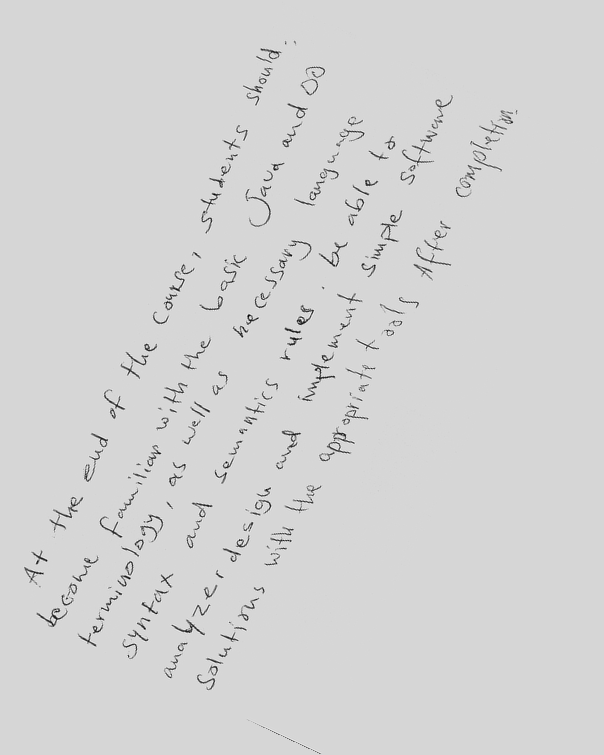 At the end of the course, students should:
become familiar with the basic Java and OO
terminology, as well as necessary language
syntax and semantics rules. be able to
analyzer design and implement simple software
solutions with the appropriate tools After completion